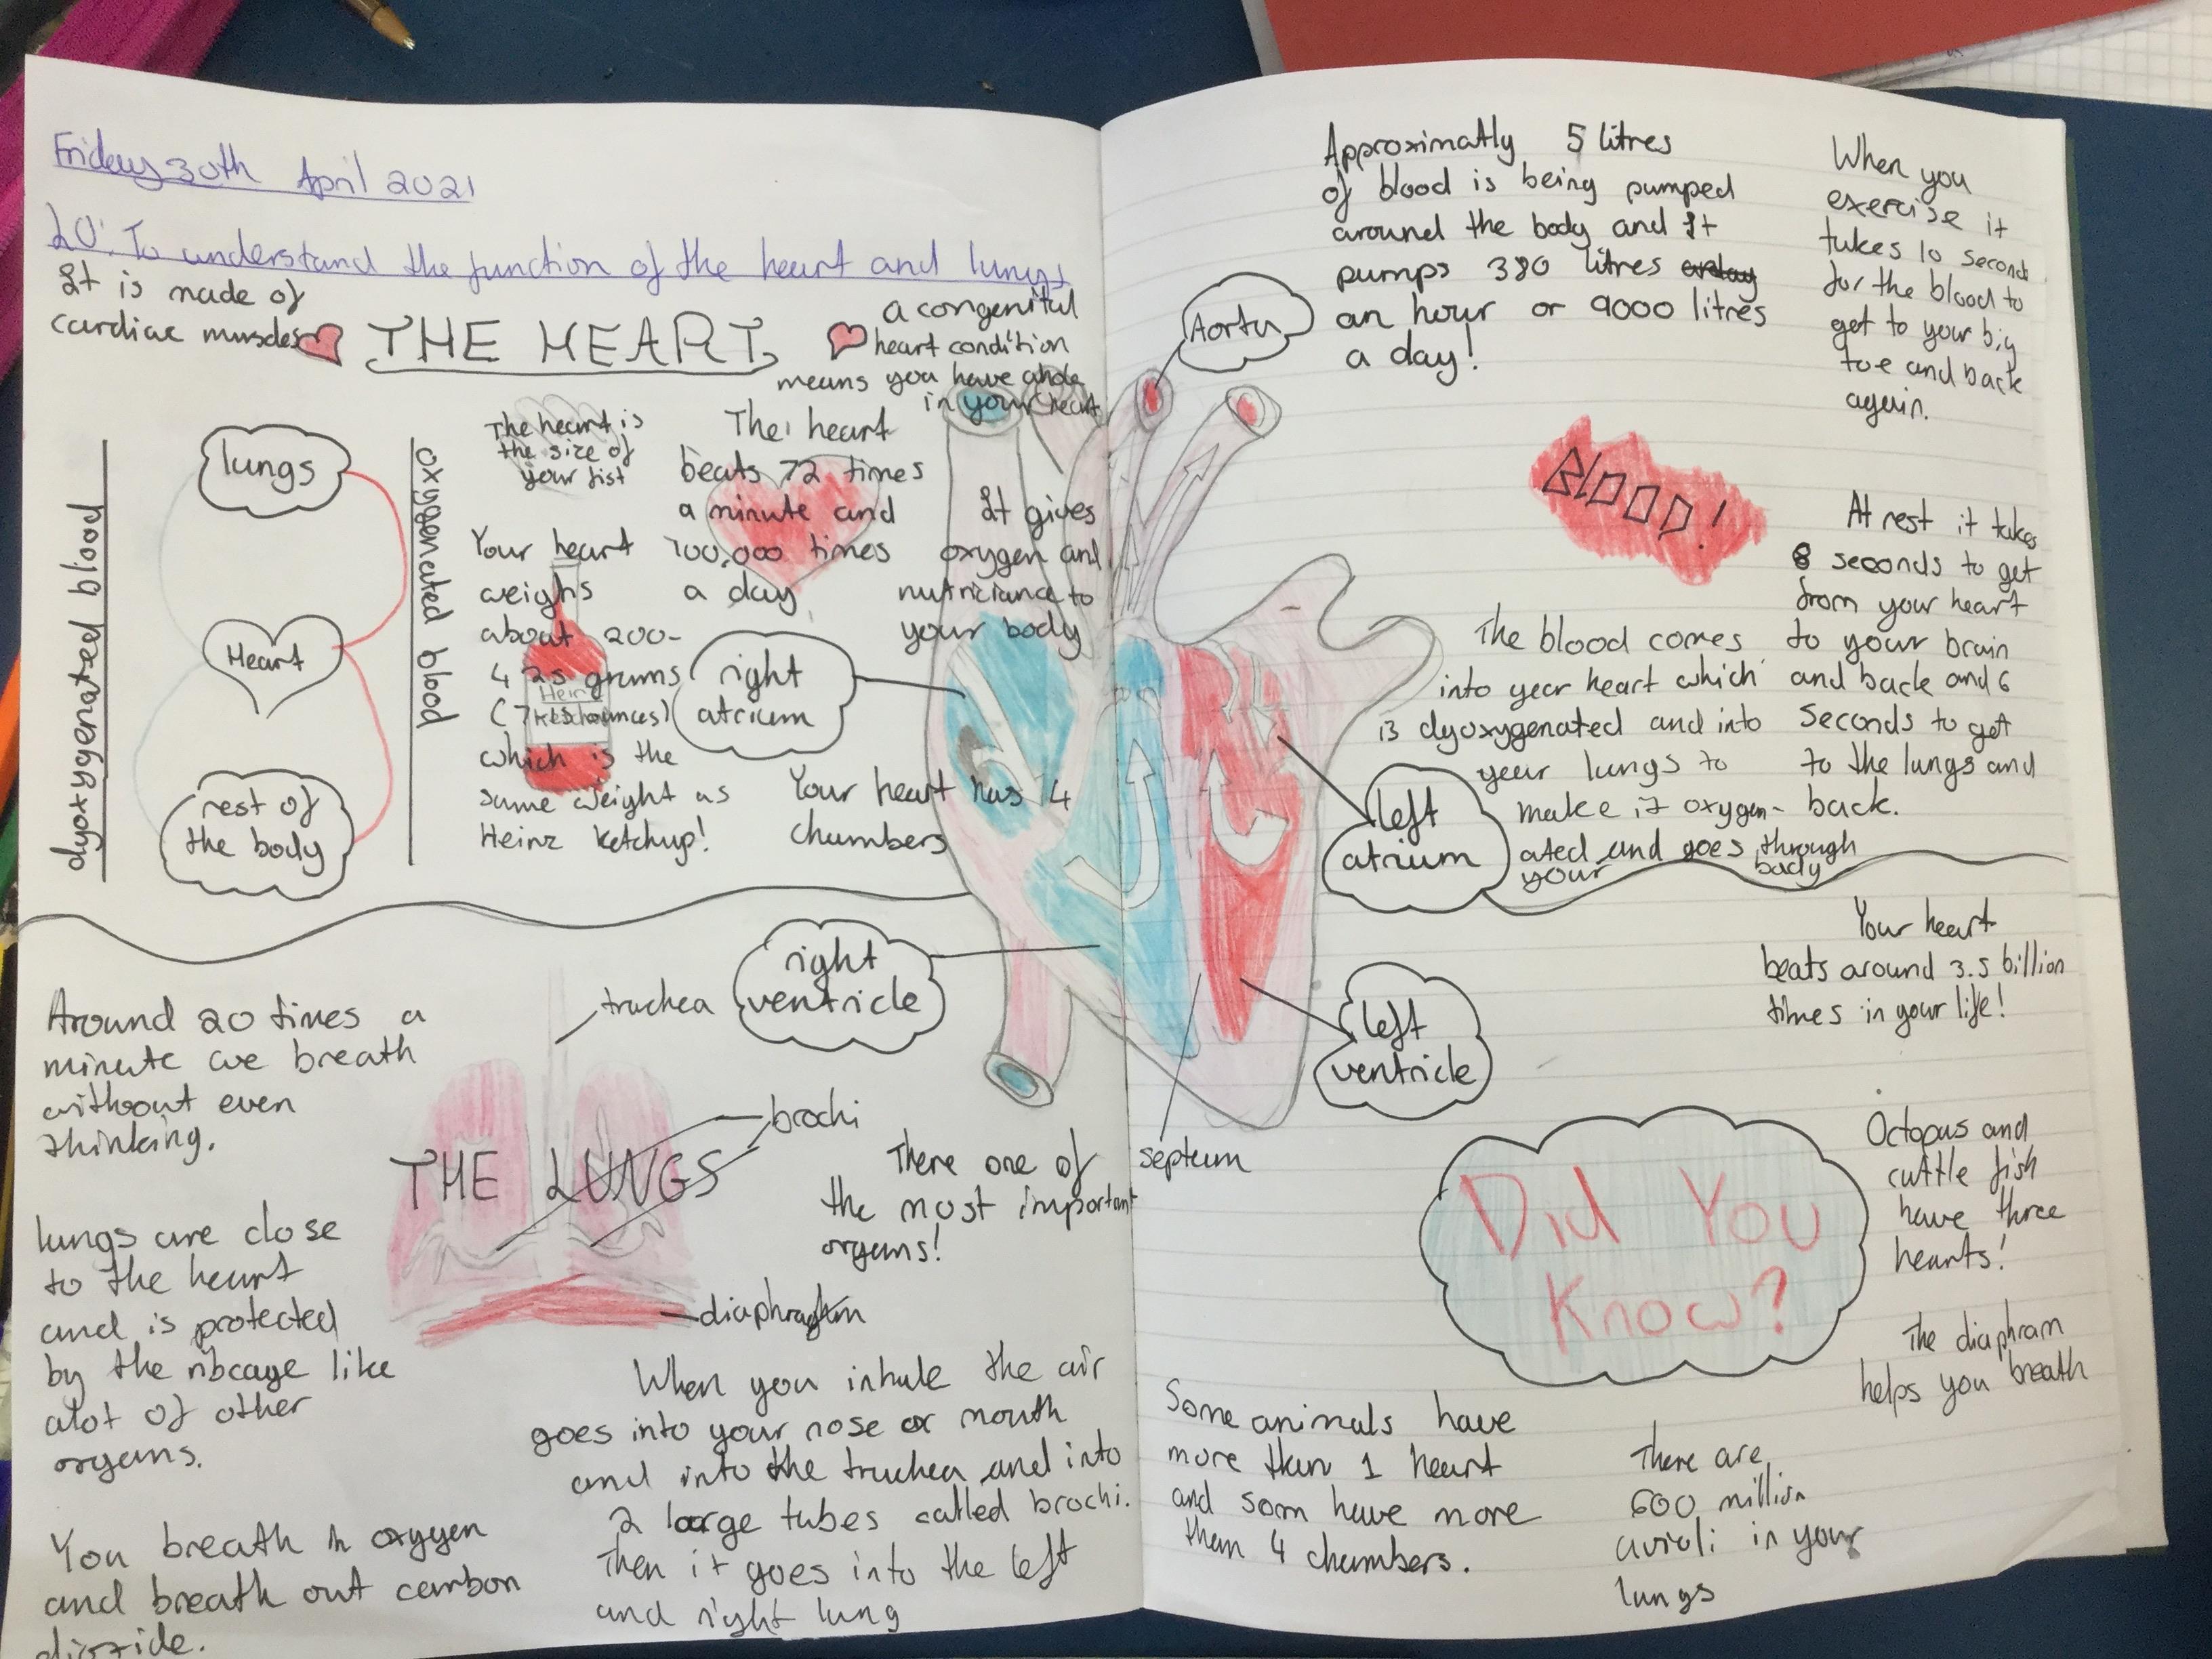 Friday 30th April 2021
LO: To understand the function of the heart and lungs
It is made of
cardiac muscles
THE HEART
a congenital
heart condition
means you have a hole
in your heart
dyoxygenated blood
lungs
Heart
rest of
the body
oxygenated blood
The heart is
the size of
your fist
The heart
beats 72 times
a minute and
100,000 times
a day
Your heart
weighs
about 200-
425 grams
(7 ounces)
which is the
same weight as
Heinz ketchup!
Heinz
It gives
oxygen and
nutriciance to
your body
right
atrium
Your heart has 4
chambers
right
ventricle
Aorta
Approximatly 5 litres
of blood is being pumped
around the body and It
pumps 380 litres
an hour or 9000 litres
a day!
When you
exercise it
takes 10 seconds
for the blood to
get to your big
toe and back
again.
BLOOD!
At rest it takes
8 seconds to get
from your heart
to your brain
and back and 6
seconds to get
to the lungs and
back.
The blood comes
into year heart which
is dyoxygenated and into
year lungs to
make it oxygen-
ated and goes through
your body
left
atrium
left
ventricle
septum
Your heart
beats around 3.5 billion
times in your life!
Around 20 times a
minute we breath
without even
thinking.
trachea
brochi
THE LUNGS
diaphragm
There one of
the most important
organs!
lungs are close
to the heart
and is protected
by the ribcage like
alot of other
organs.
You breath in oxygen
and breath out carbon
dioxide.
When you inhale the air
goes into your nose or mouth
and into the trachea and into
2 large tubes called brochi.
Then it goes into the left
and right lung
Did You
Know?
Octopus and
cuttle fish
have three
hearts!
The diaphram
helps you breath
Some animals have
more than 1 heart
and som have more
than 4 chambers.
There are
600 million
avioli in your
lungs